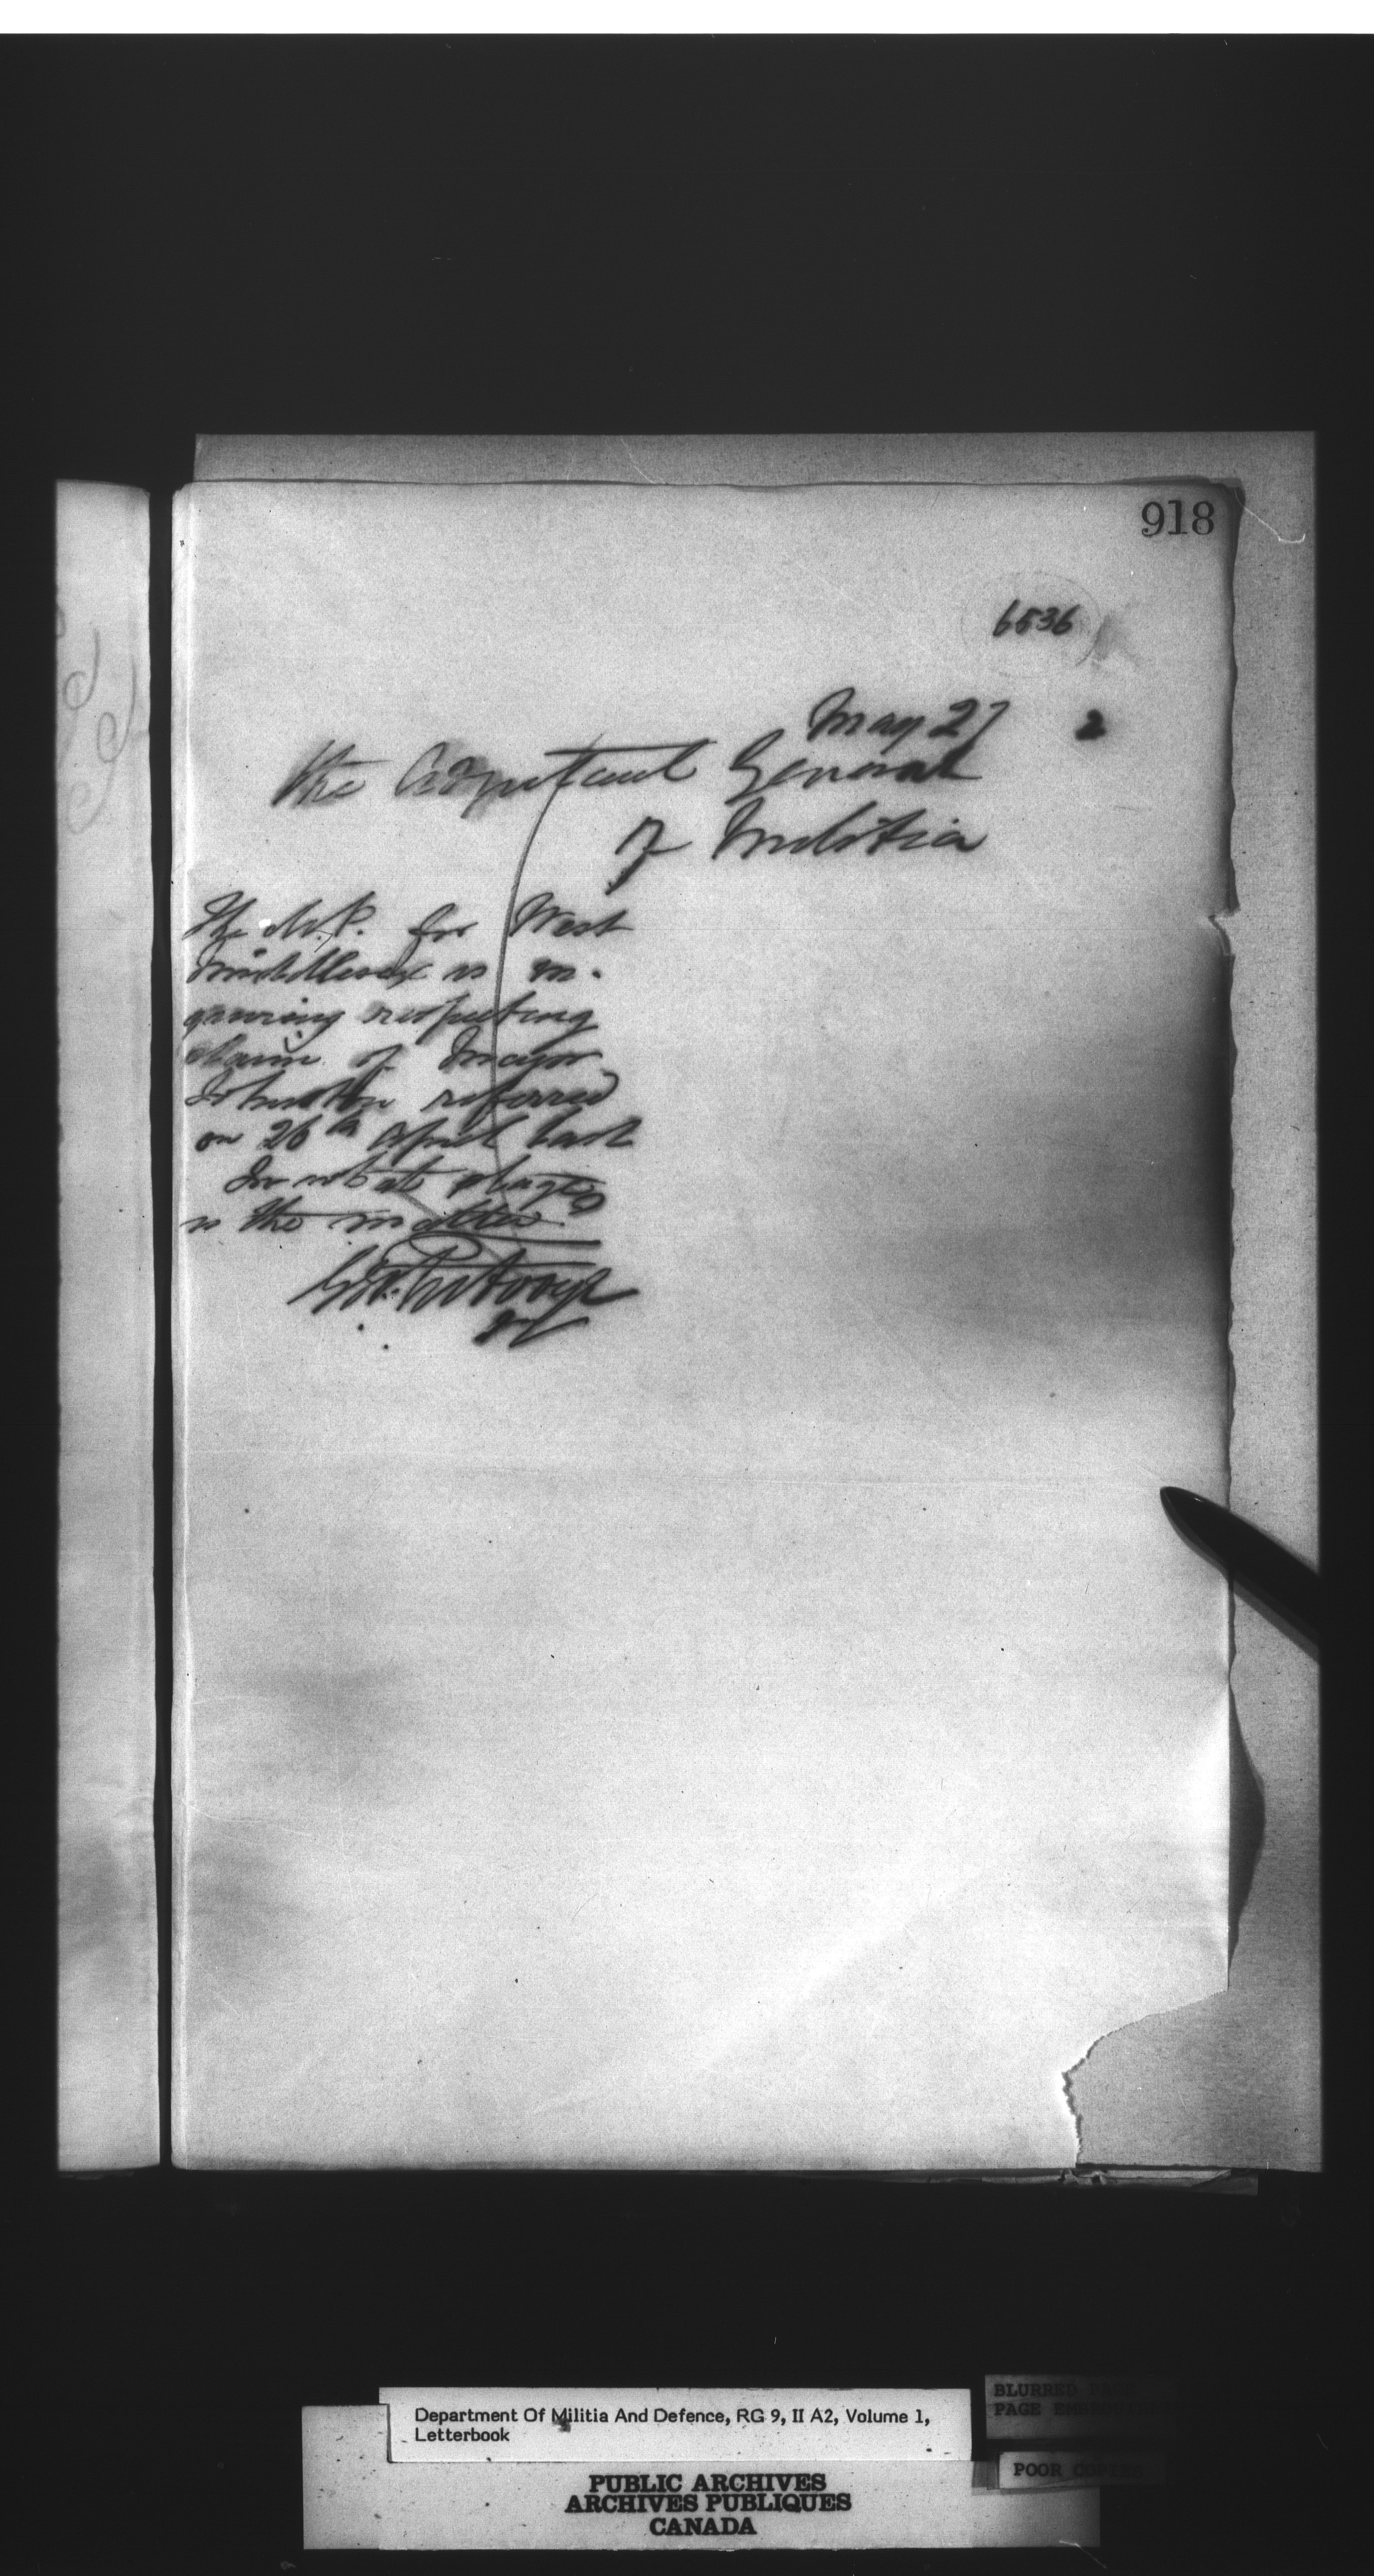 918
6536
May 27 2
The Adjutant General
of Militia
The M.P. for West
Middlesex is in-
quiring respecting
claim of Major
Johnston referred
on 26th April last
In what stage
is the matter
Department Of Militia And Defence, RG 9, II A2, Volume 1,
Letterbook
BLURRED PAGE
PAGE
POOR COPY
PUBLIC ARCHIVES
ARCHIVES PUBLIQUES
CANADA